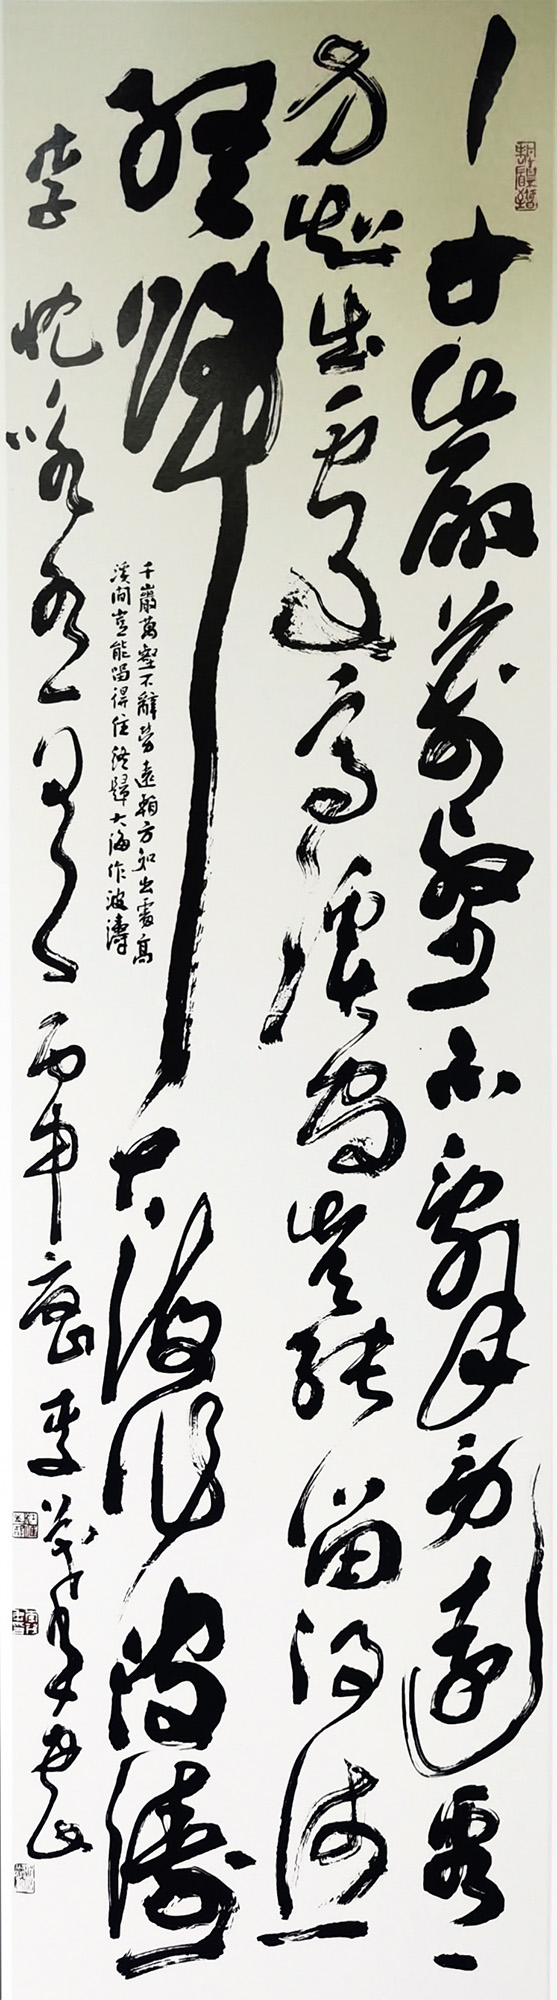 千巖萬壑不辭勞遠看
方知出處高溪澗豈能留得住
終歸大海作波濤
千巖萬壑不辭勞遠看方知出處高
溪間豈能留得住終歸大海作波濤
李忱 丙申